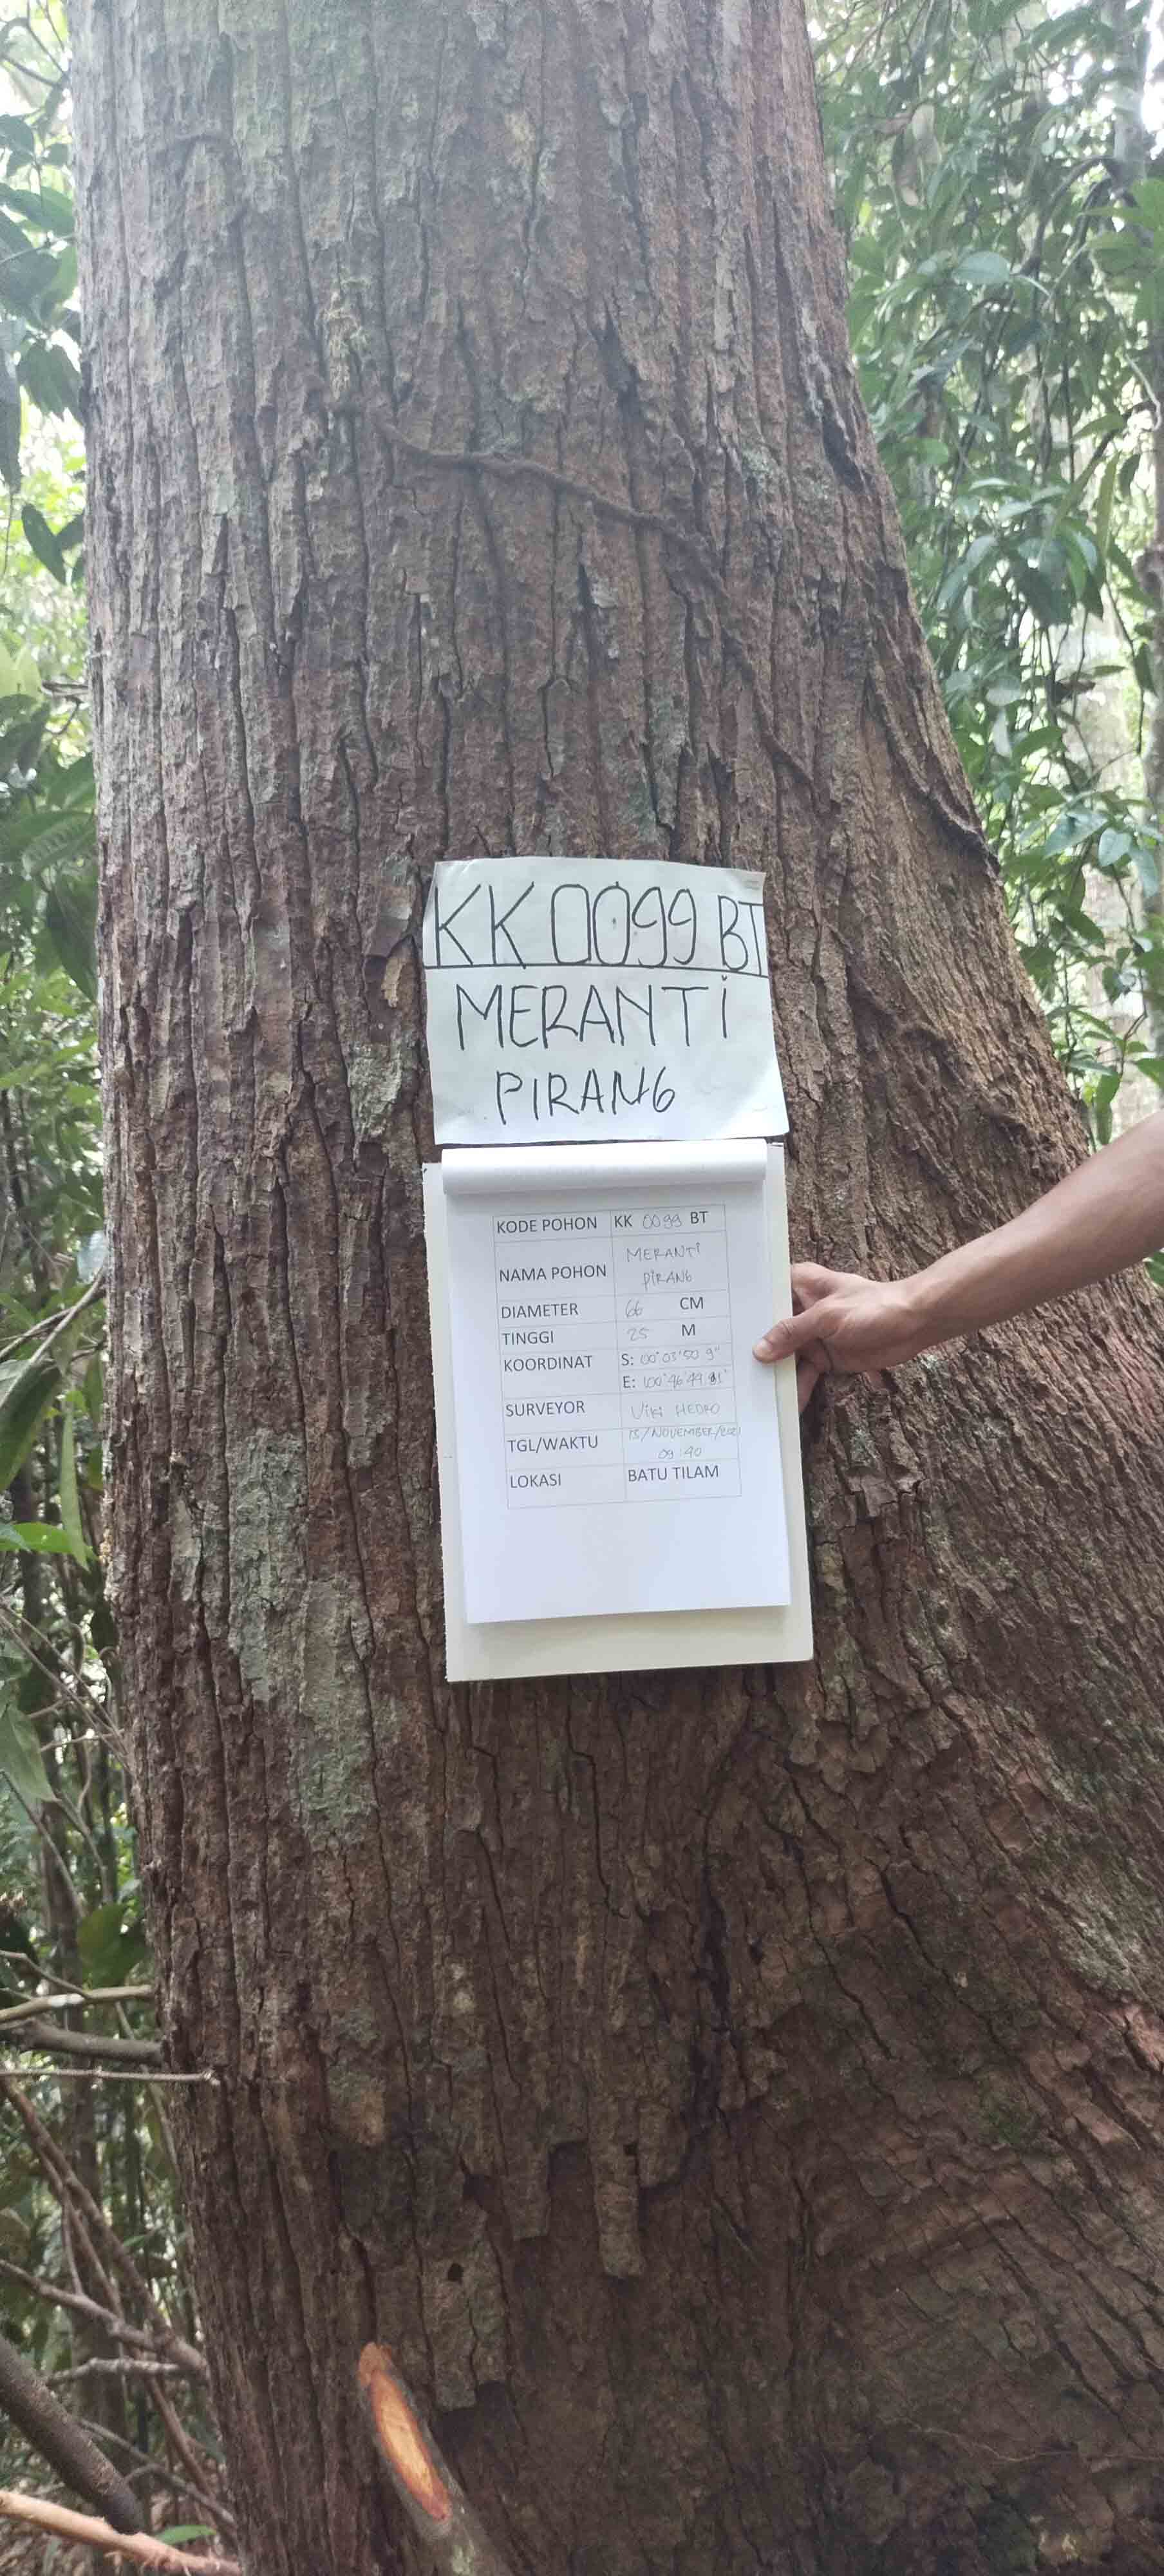 KK 0099 BT
MERANTi
PIRANG
KODE POHON KK 0099 BT
NAMA POHON MERANTi
PIRANG
DIAMETER 66 CM
TINGGI 25 M
KOORDINAT S: 00°03'50 9"
E: 100°46'49
SURVEYOR Viki HEDRO
TGL/WAKTU 13/NOVEMBER/2021
09:40
LOKASI BATU TILAM